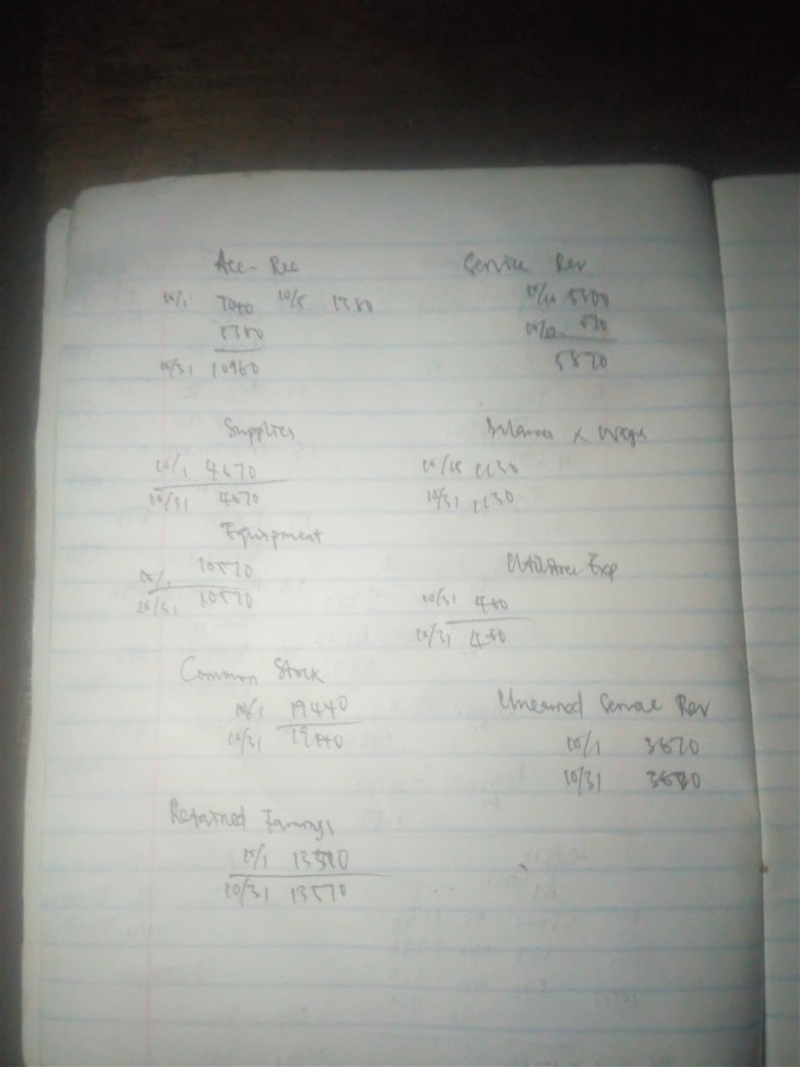 Acc- Rec
10/1 7040 10/5 1380
5300
10/31 10960
Service Rev
10/10 5300
570
5870
Supplies
10/1 4670
10/31 4670
Wage
10/15 1130
10/31 1130
Equipment
10/1 10570
10/31 10570
Utilities Exp
10/31 450
10/31 450
Common Stock
10/1 19440
10/31 19440
Unearned Service Rev
10/1 3670
10/31 3670
Retained Earnings
10/1 13570
10/31 13570